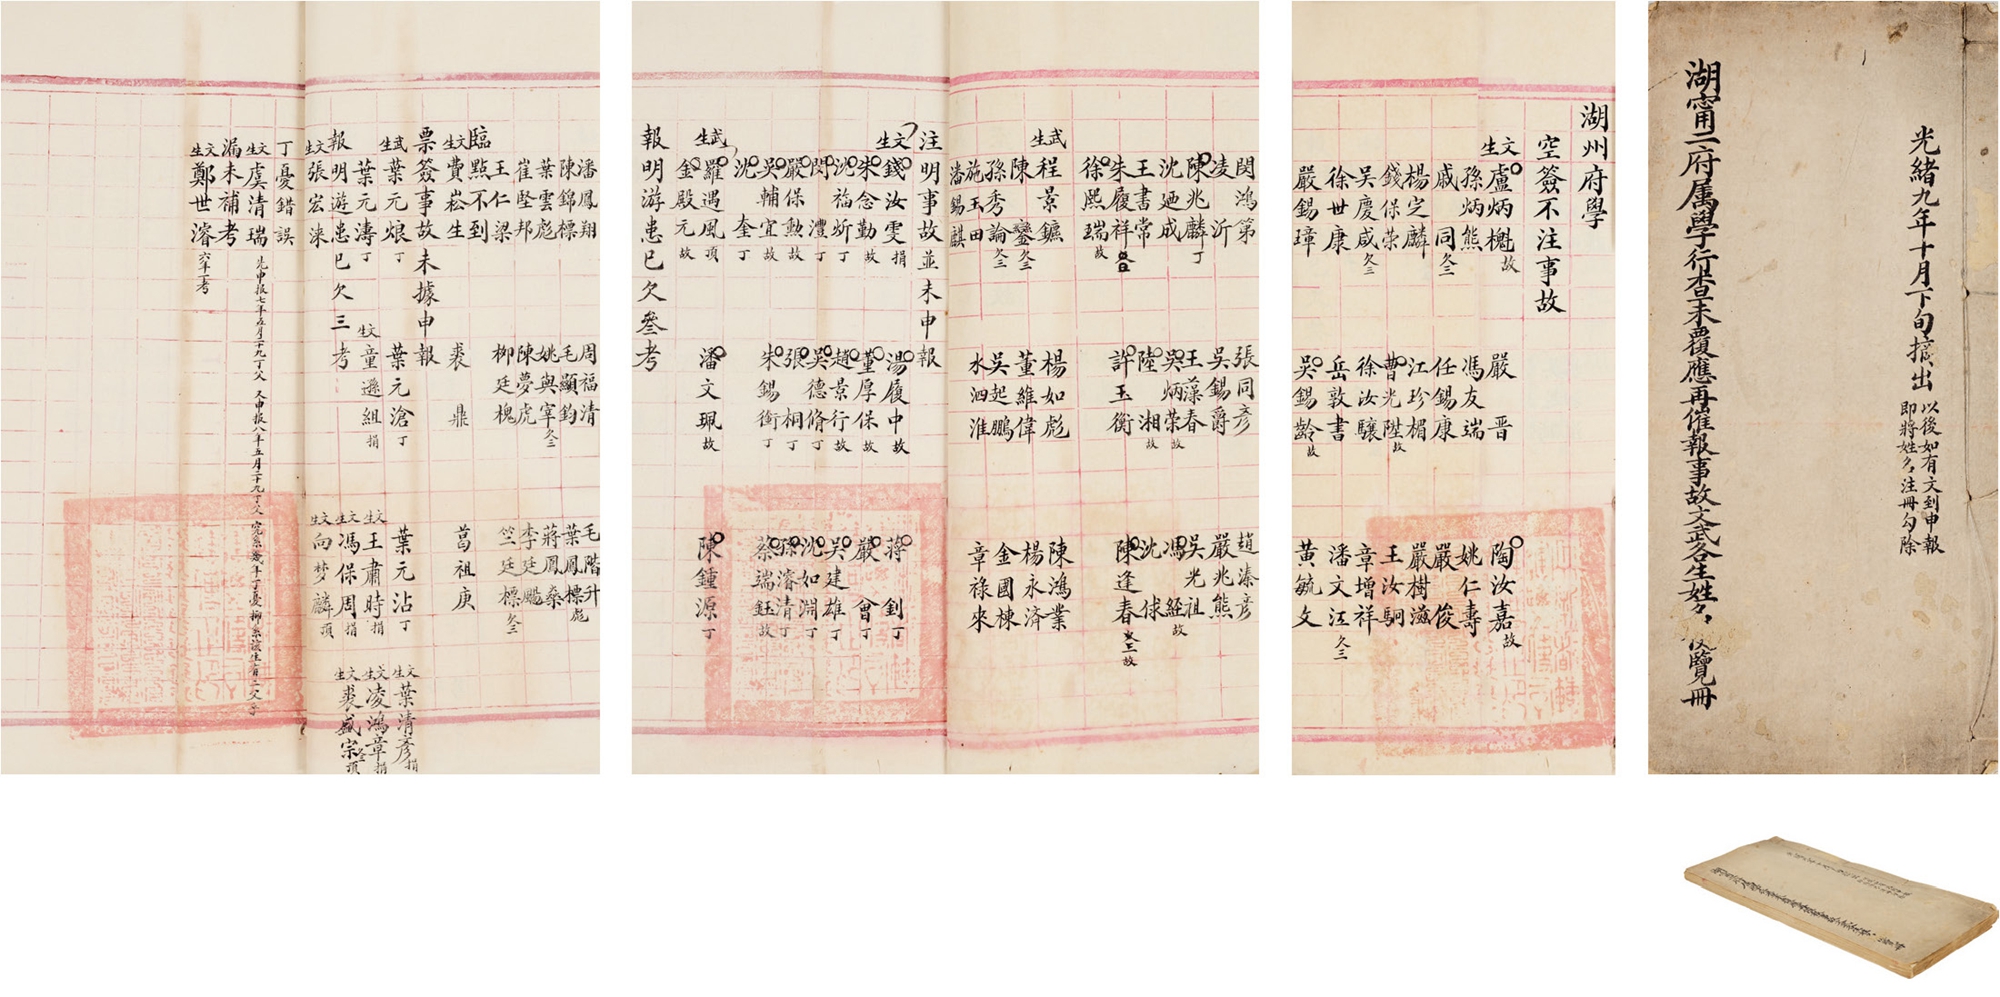 光緒九年十月下旬摘出
以後如有文到申報
即將姓名注冊勾除
湖甯二府属學行查未覆應再催報事故文武各生姓名 覽冊
湖州府學
空簽不注事故
文生
盧炳槐故 嚴晋 陶汝嘉故
孫炳熊 馮友端 姚仁壽
戚同欠三 任錫康 嚴俊
楊定麟 江珍楣 嚴樹滋
錢保荣 曹光陞故 王汝駉
吳慶咸欠三 徐汝驤 章增祥
徐世康 岳敦書 潘文江欠三
嚴錫璋 吳錫齡故 黃毓文
閔鴻第 張同彦 趙溱彦
凌沂 吳錫爵 嚴兆熊
陳兆麟丁 王藻春 吳光祖
沈廼成 吳炳荣故 馮經故
王書常 陸湘故 沈俅
朱履祥 許玉衡 陳逢春故
徐熙瑞故
武生
程景鑣 楊如彪 陳鴻業
陳鑾欠三 董維偉 楊永濟
孫秀論欠三 吳起鵬 金國棟
施玉田 水泗淮 章祿來
潘錫麒
注明事故並未申報
文生
錢汝雯捐 湯履中故 蒋釗丁
朱念勤故 董厚保故 嚴會丁
沈福圻丁 趙景行故 吳建雄丁
閔澧丁 吳德脩丁 沈如淵丁
嚴保勲故 張桐丁 孫濬清丁
吳輔宜故 朱錫衡丁 蔡端鈺故
沈奎丁
武生
羅遇風頂 潘文珮故 陳鍾源丁
金殿元故
報明游患已欠叄考
潘鳳翔 周福清 毛階升
陳錦標 毛顯鈞 葉鳳標彪
葉雲彪 姚與宰欠三 蔣鳳桑
崔堅邦 陳夢虎 李廷颺
王仁梁 柳廷槐 竺廷標欠三
臨點不到
文生 費崧生 裘鼎 葛祖庚
票簽事故未據申報
武生 葉元烺丁 葉元滄丁 葉元沾丁 文生 葉清彦捐
葉元濤丁 文生 童遜組捐 文生 王肅時捐 文生 凌鴻章捐
報明游患已欠三考 文生 馮保周捐 文生 裘盛宗頂
文生 張宏涞 文生 向梦麟頂
丁憂錯誤
文生 虞清瑞
漏未補考
文生 鄭世濬六年丁考